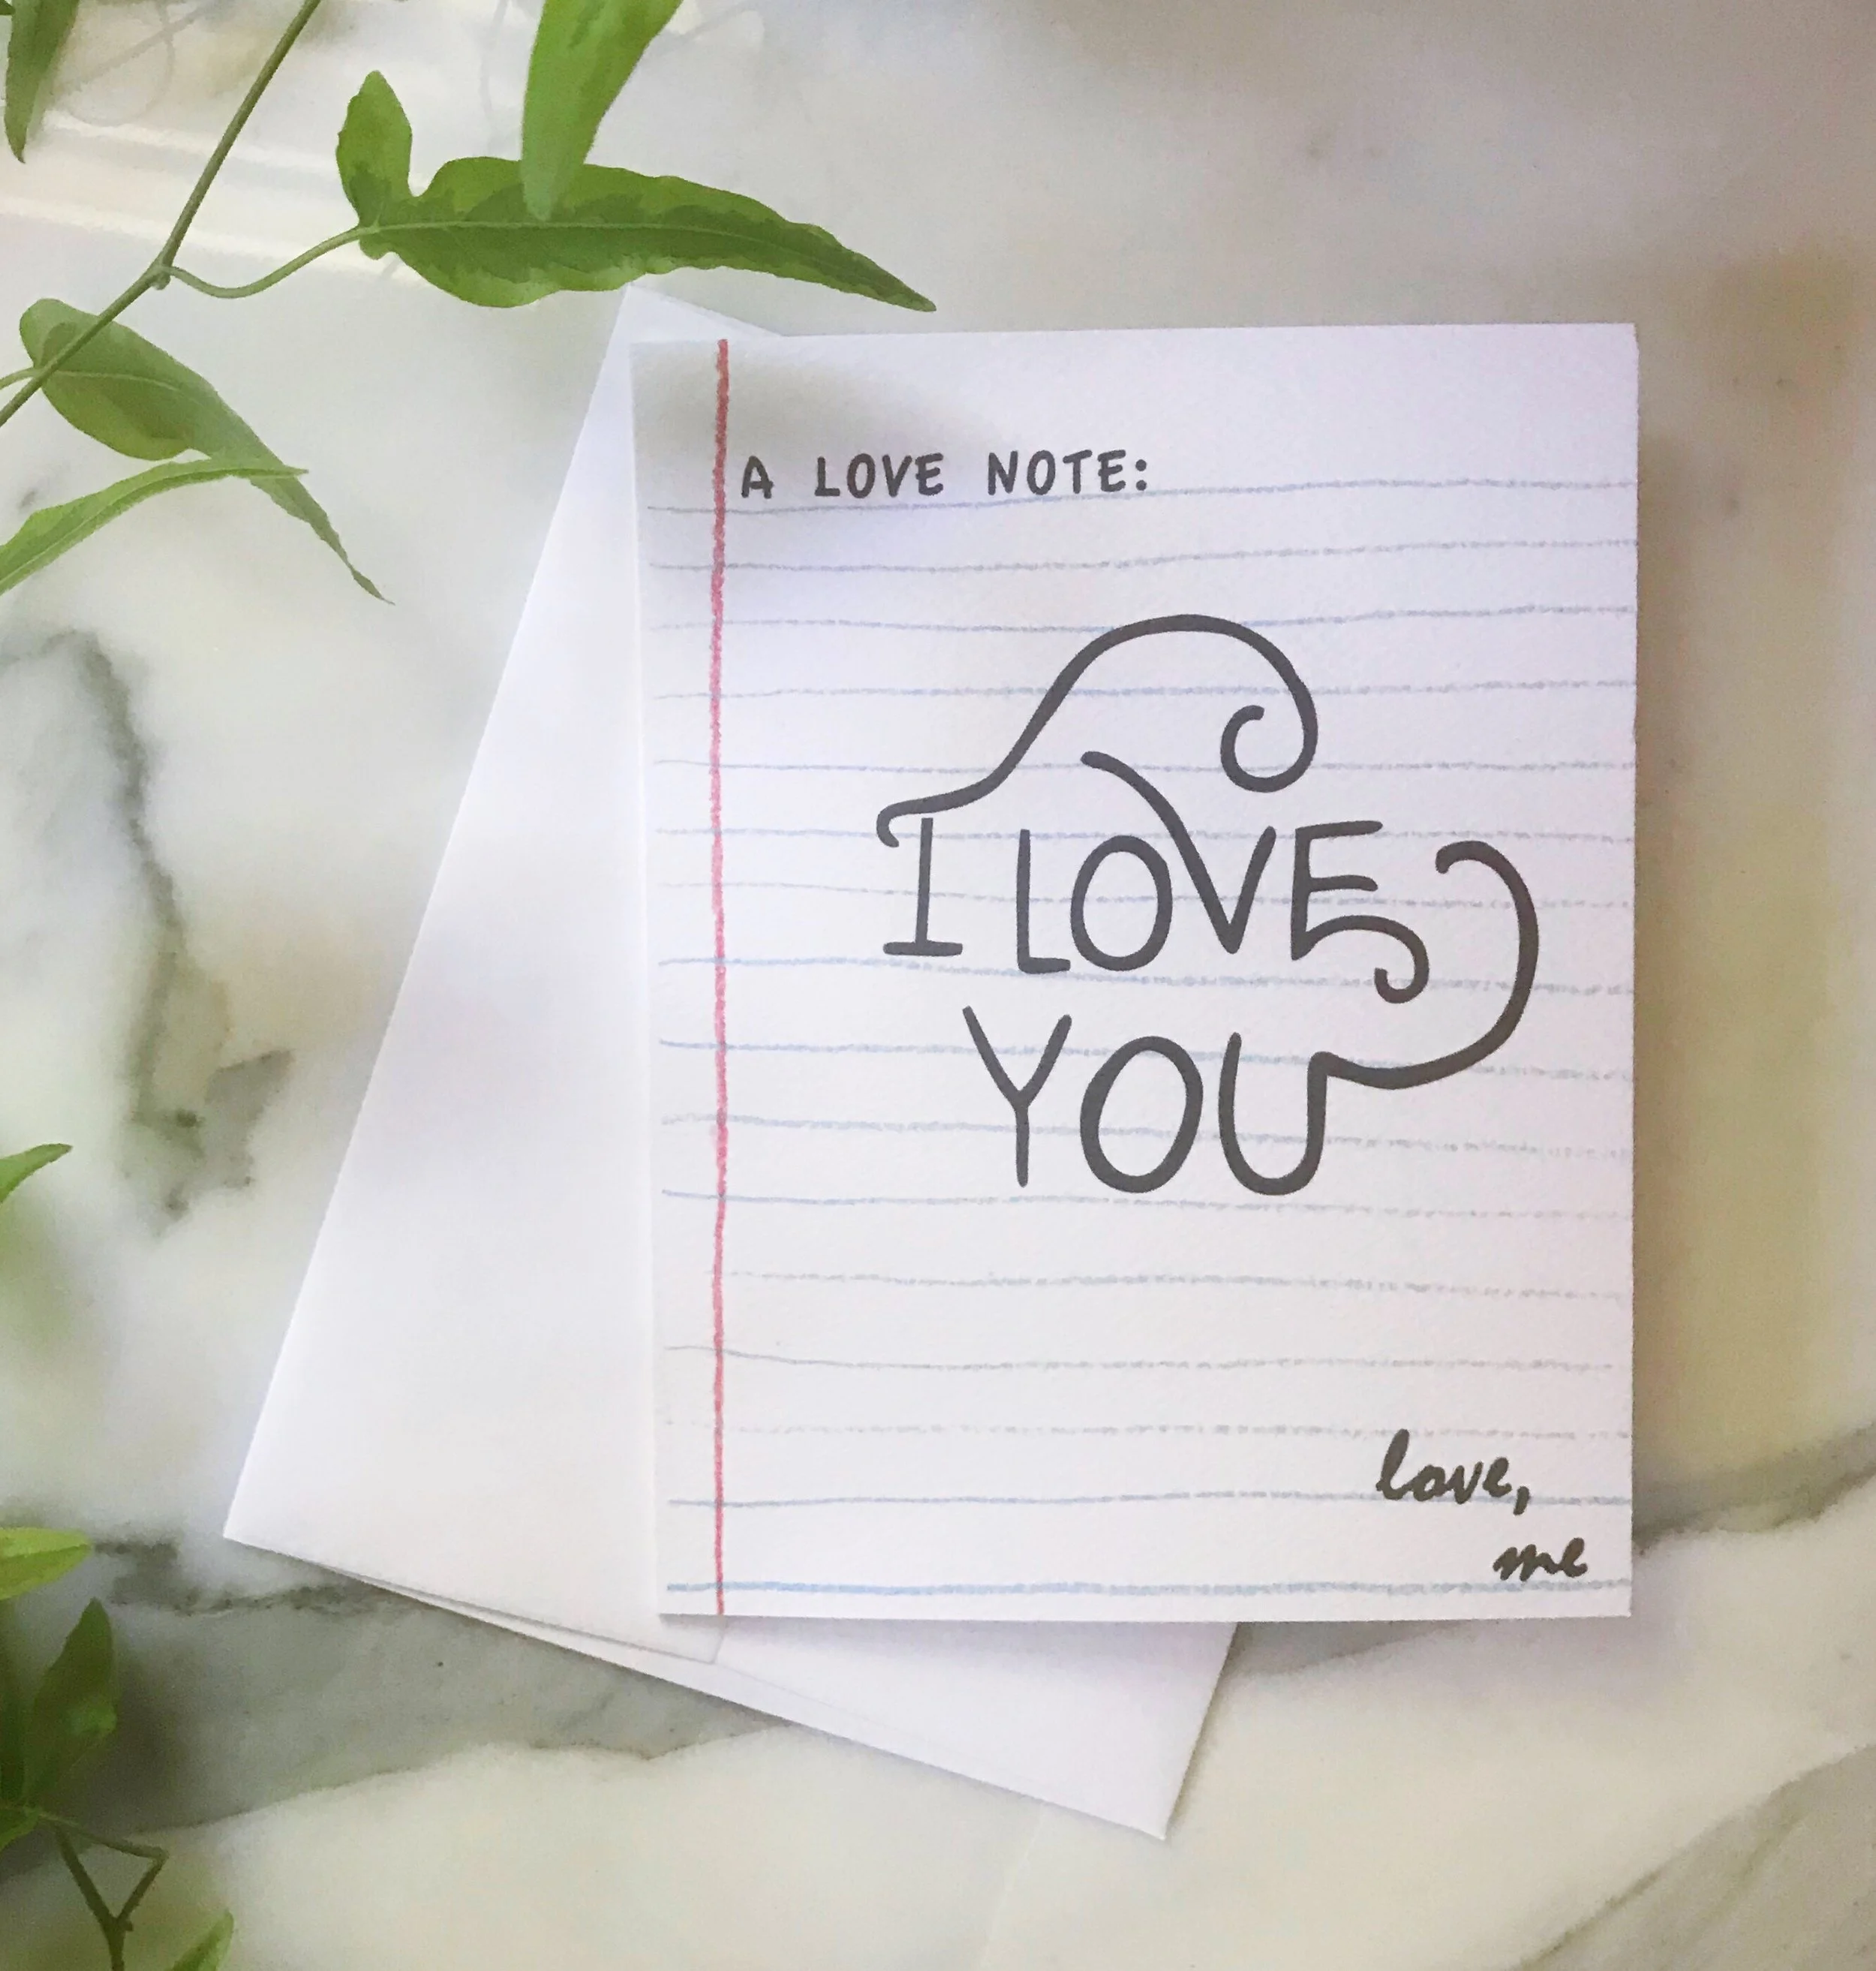 A LOVE NOTE:
I LOVE
YOU
love,
me